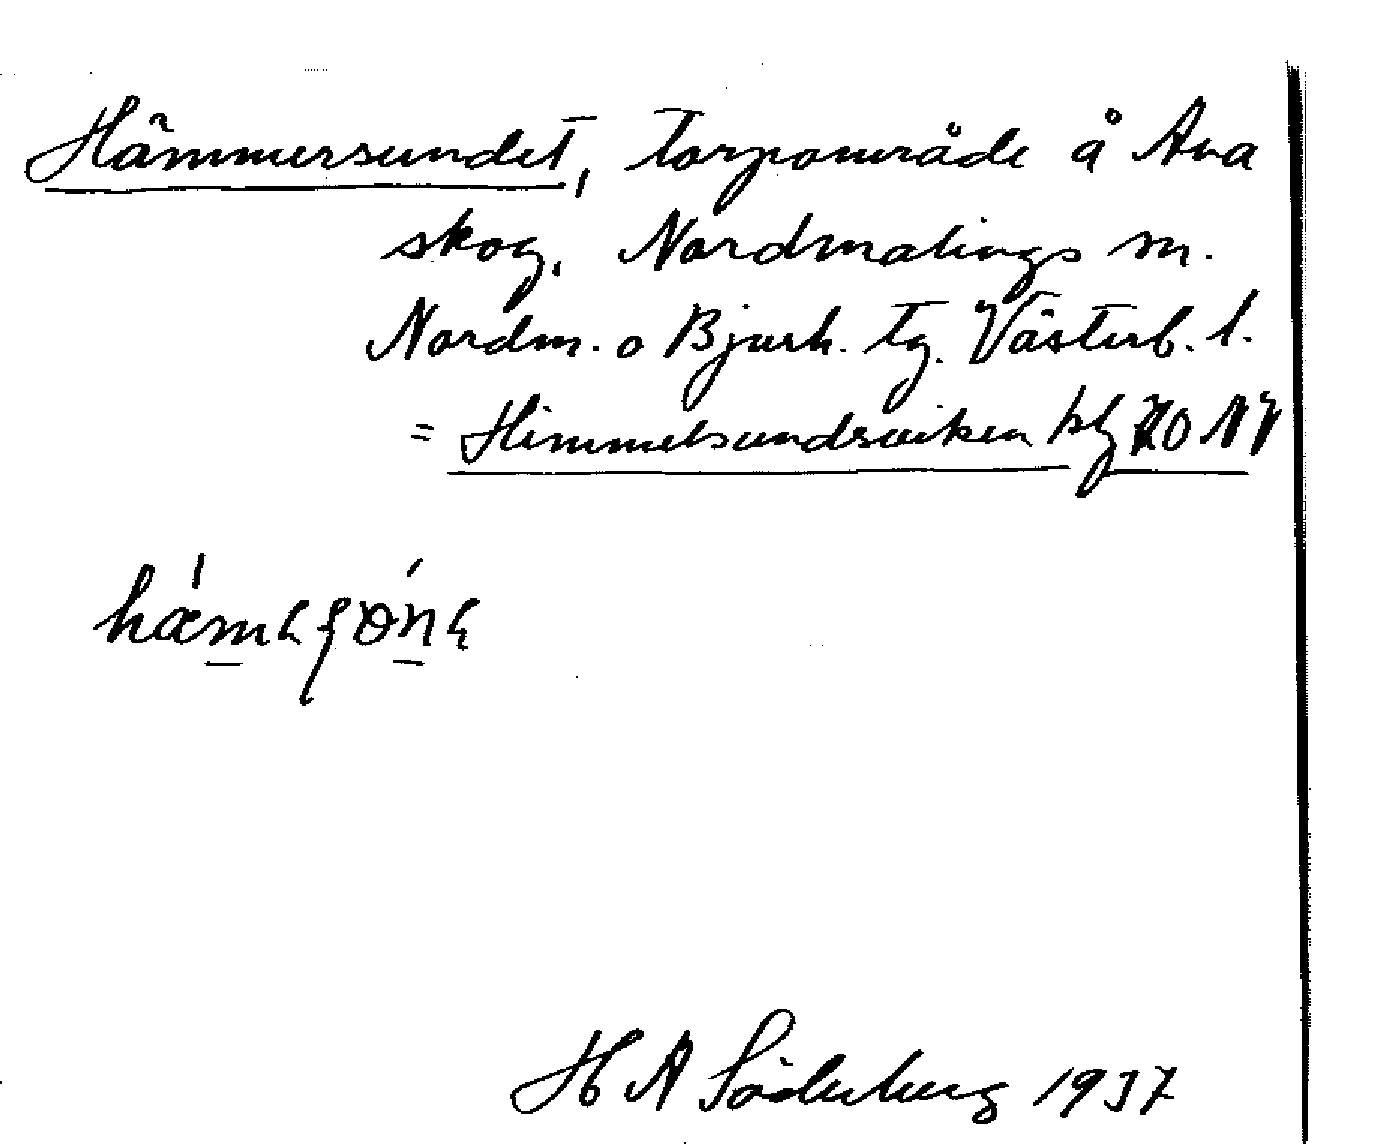 Hämmersundet, torpområde å Ava
skog. Nordmalings sn.
Nordm. o Bjurh. tg. Västerb. l.
= Himmelsundsviken kbl 70 NV
H A Söderberg 1937